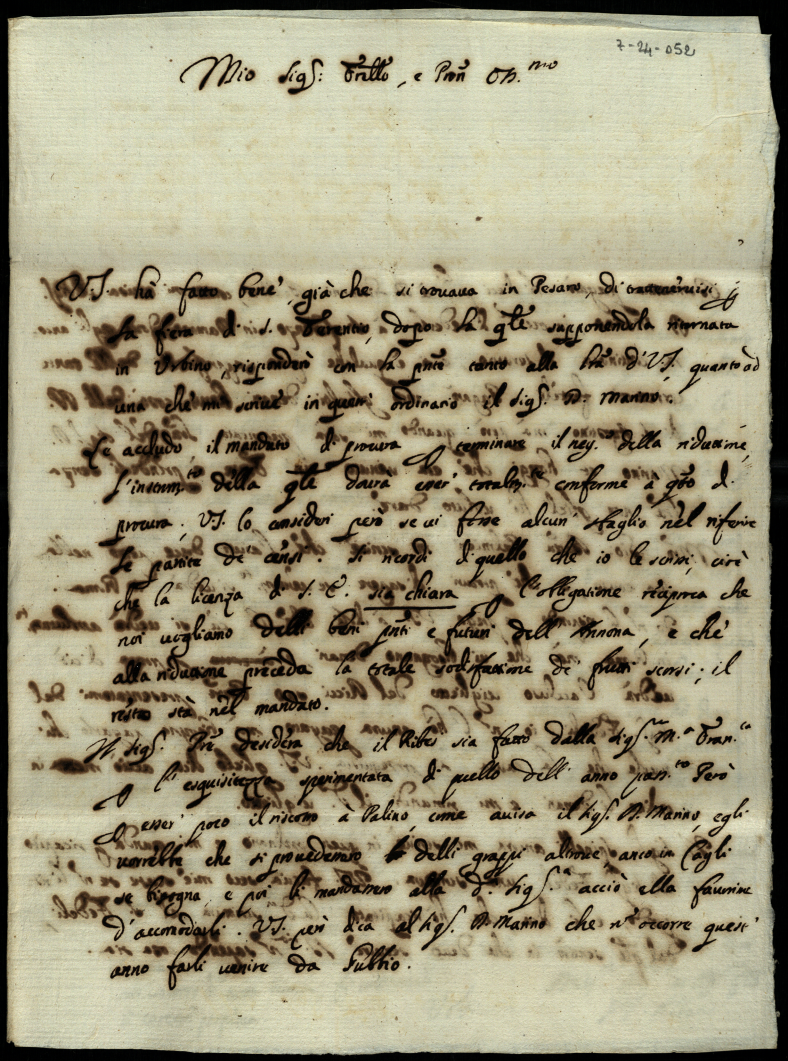 7-24-052
Mio Sig.r frᵃllo, e Pron Oss.mo
V.S. hà fatto bene, già che si trovava in Pesaro, di trattenervisi p
la fiera di S. Terentio, dopo la qle supponendola ritornata
in Urbino, risponderò con la pnte tanto alla lra di V.S. quanto ad
una che mi scrive in quest' ordinario il Sig.r D. Marino.
Le accludo il mandato di procura p terminare il neg.o della riduttine,
l'instrum.to della qle dovrà esser totalm.te conforme a qsto di
procura. V.S. lo consideri però se vi fosse alcun sbaglio nel riferire
le partite de censi. Si ricordi di quello che io le scrissi, cioè
che la licenza di S. E. sia chiara p l'obligatione reciproca che
noi vogliamo delli beni pnti e futuri dell' Annona, e che
alla riduttine preceda la totale sodisfattine de frutti scorsi; il
resto stà nel mandato.
Il Sig.r Pre desidera che il Ribes sia fatto dalla Sig.ra M.a Fran.ca
p l'esquisitezza sperimentata di quello dell' anno pass.to Però
p esser poco il riscotto à Palino, come avisa il Sig.r D. Marino, egli
vorrebbe che si provedessero delli grappi altrove, anco in Cagli
se bisogna, e poi li mandassero alla d.a Sig.ra acciò ella favorisse
d'accomodarli. V.S. però dica al Sig.r D. Marino che nō occorre quest'
anno farli venire da Gubbio.